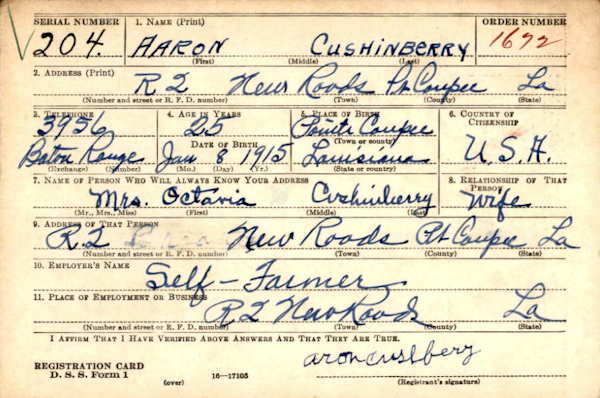 SERIAL NUMBER 1. NAME (Print) ORDER NUMBER
204. AARON CUSHINBERRY 1672
(First) (Middle) (Last)
2. ADDRESS (Print)
R2 New Roads Pt Coupee La
(Number and street or R. F. D. number) (Town) (County) (State)
3. TELEPHONE 4. AGE IN YEARS 5. PLACE OF BIRTH 6. COUNTRY OF CITIZENSHIP
3956 25 Pointe Coupee
DATE OF BIRTH (Town or county)
Baton Rouge Jan 8 1915 Louisiana U.S.A.
(Exchange) (Number) (Mo.) (Day) (Yr.) (State or country)
7. NAME OF PERSON WHO WILL ALWAYS KNOW YOUR ADDRESS 8. RELATIONSHIP OF THAT PERSON
Mrs. Octavia Cushinberry Wife
(Mr., Mrs., Miss) (First) (Middle) (Last)
9. ADDRESS OF THAT PERSON
R2 New Roads Pt Coupee La
(Number and street or R. F. D. number) (Town) (County) (State)
10. EMPLOYER'S NAME
Self - Farmer
11. PLACE OF EMPLOYMENT OR BUSINESS
R2 New Roads La
(Number and street or R. F. D. number) (Town) (County) (State)
I AFFIRM THAT I HAVE VERIFIED ABOVE ANSWERS AND THAT THEY ARE TRUE.
REGISTRATION CARD
D. S. S. Form 1 (over) 16-17105 (Registrant's signature)